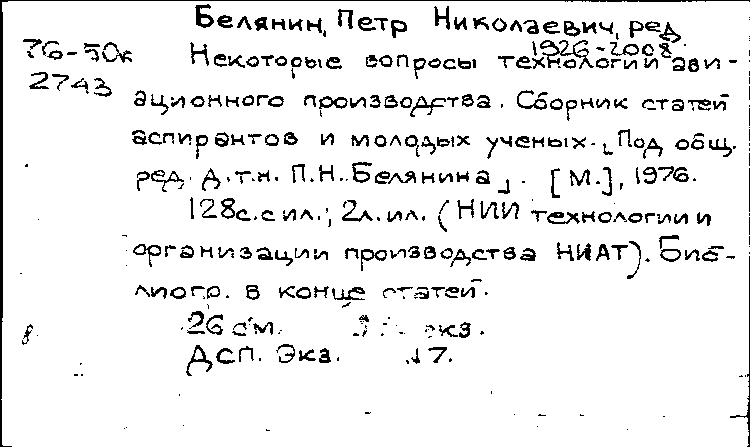 Белянин, Петр Николаевич, ред
1926-2008
76-50к Некоторые вопросы технологии ави-
2743 ационного производства. Сборник статей
аспирантов и молодых ученых. [Под общ.
ред. д.т.н. П.Н. Белянина]. [М.], 1976.
128с. с ил.; 2л. ил. (НИИ технологии и
организации производства НИАТ). Биб-
лиогр. в конце статей.
26 см. экз.
8
ДСП. Экз. 7.